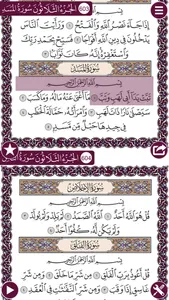 الجزء الثلاثون سورة المسد
بِسْمِ اللَّهِ الرَّحْمَٰنِ الرَّحِيمِ
إِذَا جَاءَ نَصْرُ اللَّهِ وَالْفَتْحُ ① وَرَأَيْتَ النَّاسَ
يَدْخُلُونَ فِي دِينِ اللَّهِ أَفْوَاجًا ② فَسَبِّحْ بِحَمْدِ رَبِّكَ
وَاسْتَغْفِرْهُ إِنَّهُ كَانَ تَوَّابًا ③
سُورَةُ المَسَدِ
بِسْمِ اللَّهِ الرَّحْمَٰنِ الرَّحِيمِ
تَبَّتْ يَدَا أَبِي لَهَبٍ وَتَبَّ ① مَا أَغْنَىٰ عَنْهُ مَالُهُ وَمَا كَسَبَ ②
سَيَصْلَىٰ نَارًا ذَاتَ لَهَبٍ ③ وَامْرَأَتُهُ حَمَّالَةَ الْحَطَبِ ④
فِي جِيدِهَا حَبْلٌ مِنْ مَسَدٍ ⑤
604
الجزء الثلاثون
سُورَةُ الإِخْلَاصِ
بِسْمِ اللَّهِ الرَّحْمَٰنِ الرَّحِيمِ
قُلْ هُوَ اللَّهُ أَحَدٌ ① اللَّهُ الصَّمَدُ ② لَمْ يَلِدْ وَلَمْ يُولَدْ ③
وَلَمْ يَكُنْ لَهُ كُفُوًا أَحَدٌ ④
سُورَةُ الفَلَقِ
بِسْمِ اللَّهِ الرَّحْمَٰنِ الرَّحِيمِ
قُلْ أَعُوذُ بِرَبِّ الْفَلَقِ ① مِنْ شَرِّ مَا خَلَقَ ② وَمِنْ شَرِّ
غَاسِقٍ إِذَا وَقَبَ ③ وَمِنْ شَرِّ النَّفَّاثَاتِ فِي الْعُقَدِ ④